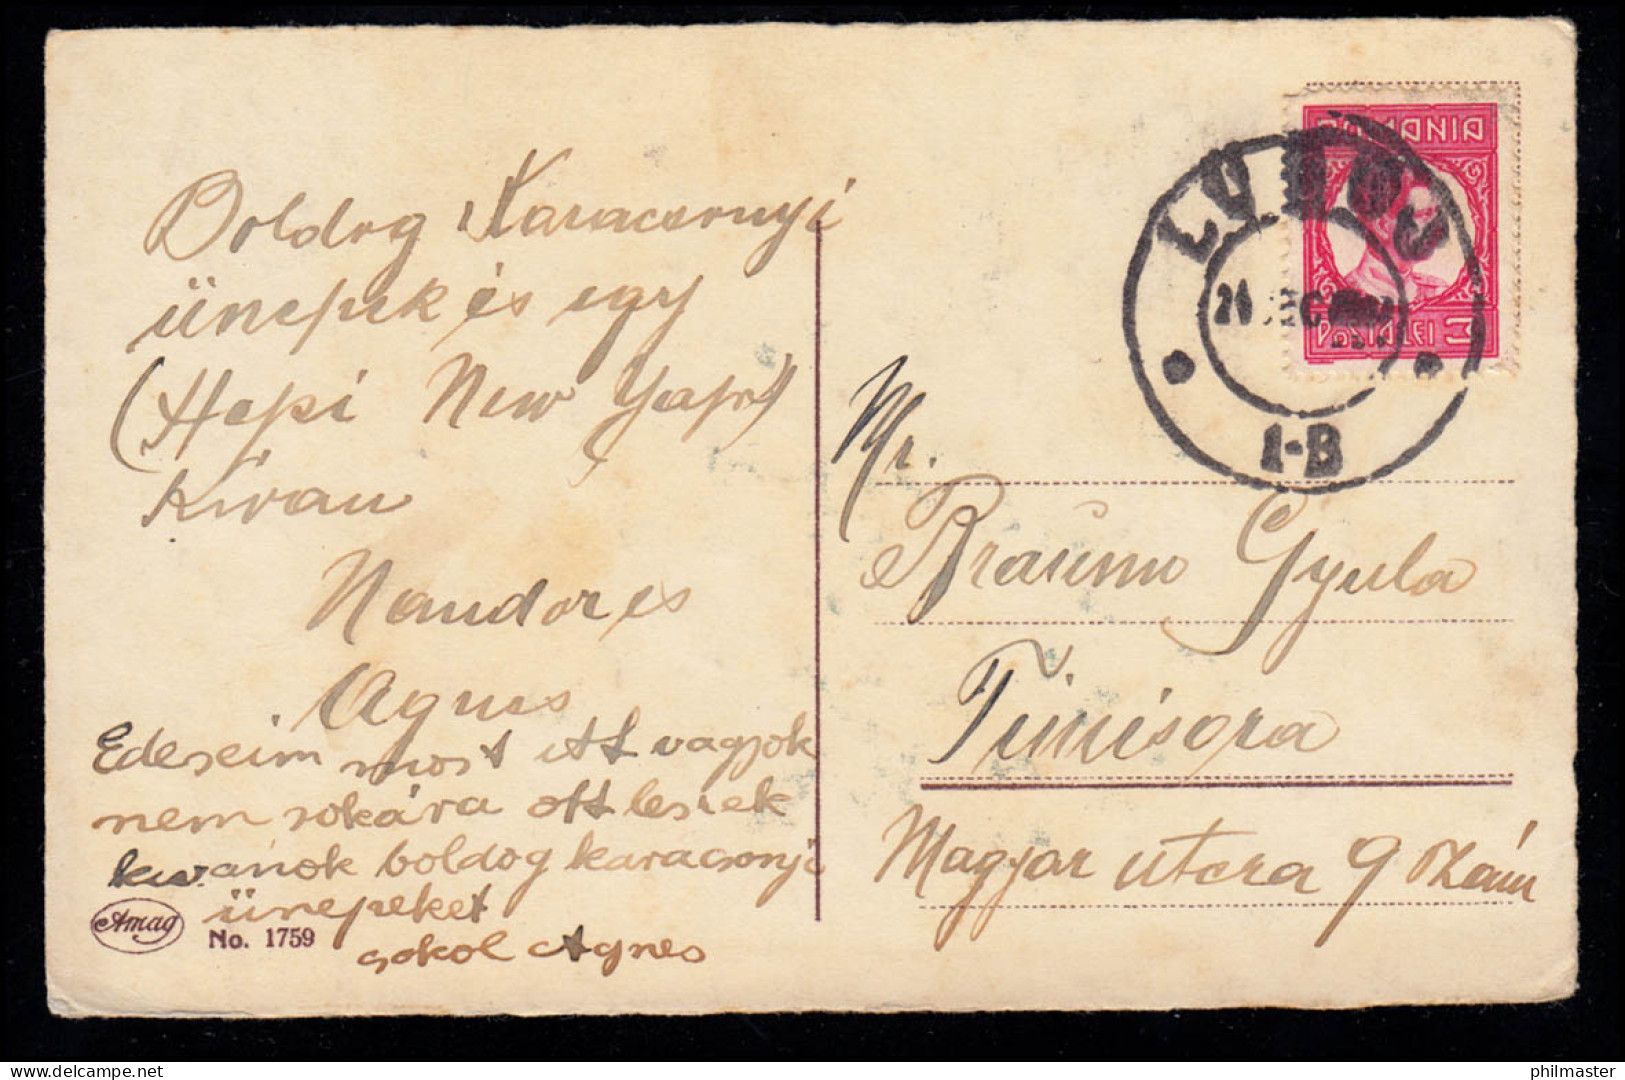 Boldog Karacsonyi
ünepek és egy
(Hepi New Yapr)
Kivan
Nandor es
Agnes
Edeseim most itt vagyok
nem sokára ott leszek
kivánok boldog karacsonyi
ünepeket
sokol Agnes
Amag
No. 1759
ROMANIA
POSTA LEI 3
LUGOJ
24 DEC
1-B
Mr.
Braunn Gyula
Timisora
Magyar utcra 9 szám
philmaster